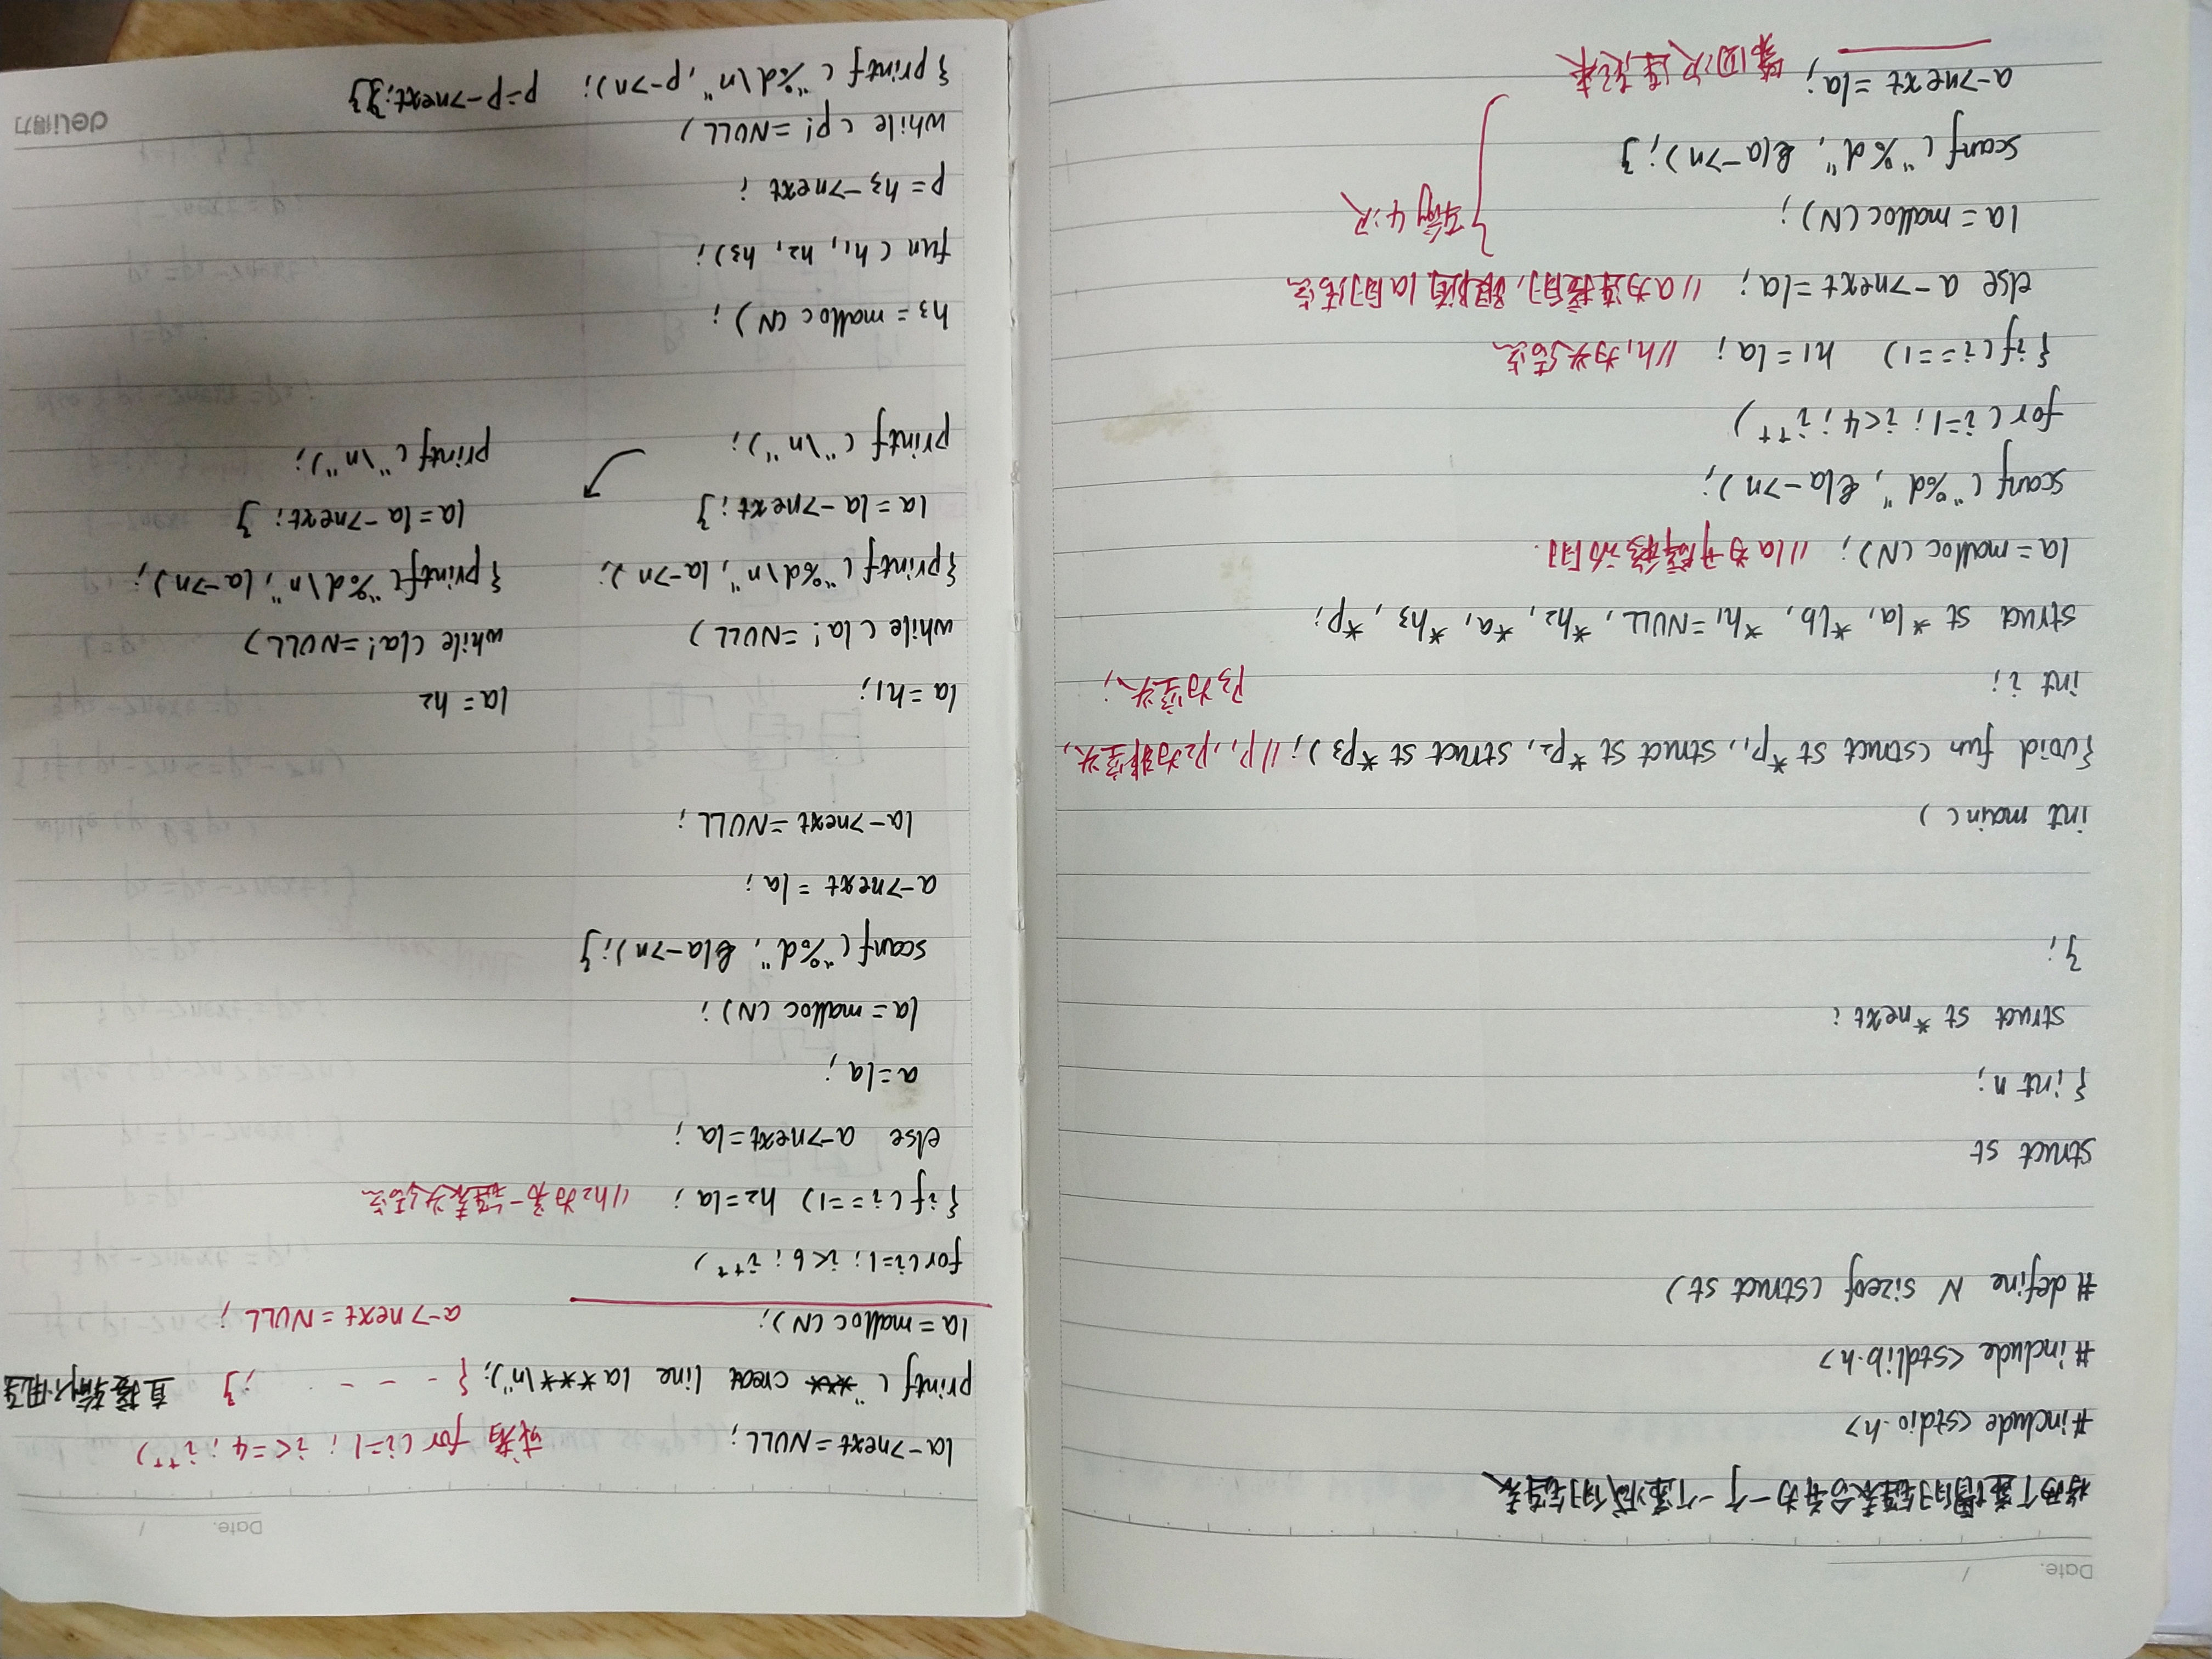 Date. /
将两个递增的链表合并为一个递减的链表
#include <stdio.h>
#include <stdlib.h>
#define N sizeof (struct st)
struct st
{ int n;
struct st *next;
};
int main ( )
{void fun (struct st *p1, struct st *p2, struct st *p3); //p1, p2为非空头,
int i; p3为空头;
struct st *la, *lb, *h1=NULL, *h2, *a, *h3, *p;
la = malloc (N); //la为开辟移动的.
scanf ("%d", &la->n);
for (i=1; i<4; i++)
{if (i==1) h1=la; //h1为头结点
else a->next=la; //a为连接的,跟随la的结点
la = malloc (N);
scanf ("%d", &la->n);} 输4次
a->next=la; 第四次连起来
Date. /
la->next=NULL; 或者 for (i=1; i<=4; i++)
printf ("*** creat line la***\n"); { - - - ; } 直接输入用
la = malloc (N); a->next = NULL;
for (i=1; i<6; i++)
{if (i==1) h2=la; //h2为另一链表头结点
else a->next=la;
a=la;
la = malloc (N);
scanf ("%d", &la->n);}
a->next = la;
la->next=NULL;
la=h1; la=h2
while (la!=NULL) while (la!=NULL)
{printf ("%d\n", la->n); {printf("%d\n", la->n);
la=la->next;} la=la->next;}
printf ("\n"); printf ("\n");
h3 = malloc (N);
fun (h1, h2, h3);
p = h3->next;
while (p!=NULL)
{printf ("%d\n", p->n); p=p->next;}}
deli得力